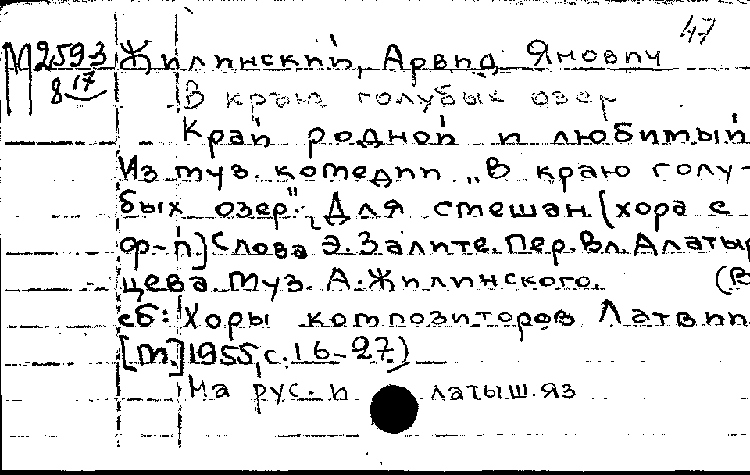 47
М 2593 Жилинский, Арвид Янович
8 17 В краю голубых озер
Край родной и любимый
Из муз. комедии „В краю голу-
бых озер". Для смешан. [хора с
ф-п] Слова Э. Залите. Пер. Вл. Алатыр
цева. Муз. А. Жилинского. (В
сб: Хоры композиторов Латвии
[М.] 1955, с. 16-27.)
На рус. и латыш. яз